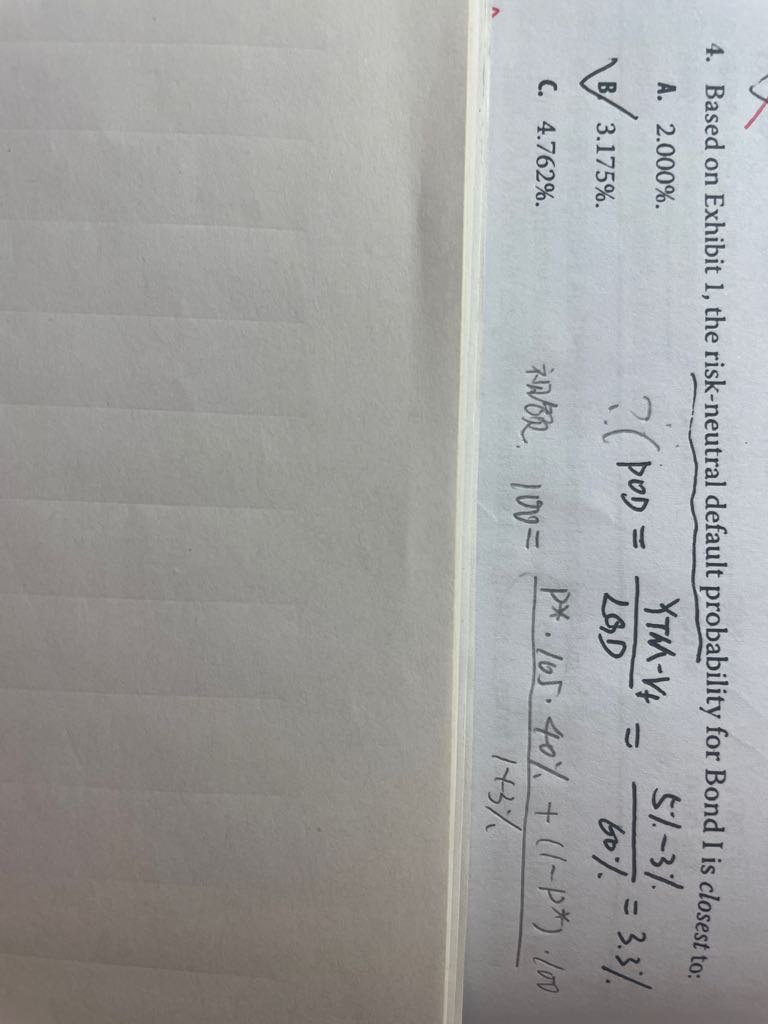 4. Based on Exhibit 1, the risk-neutral default probability for Bond I is closest to:
A. 2.000%.
B. 3.175%.
C. 4.762%.
? ( POD = YTM-Vf / LGD = 5%-3% / 60% = 3.3%
100 = P* · 105 · 40% + (1-P*) · 100 / 1+3%